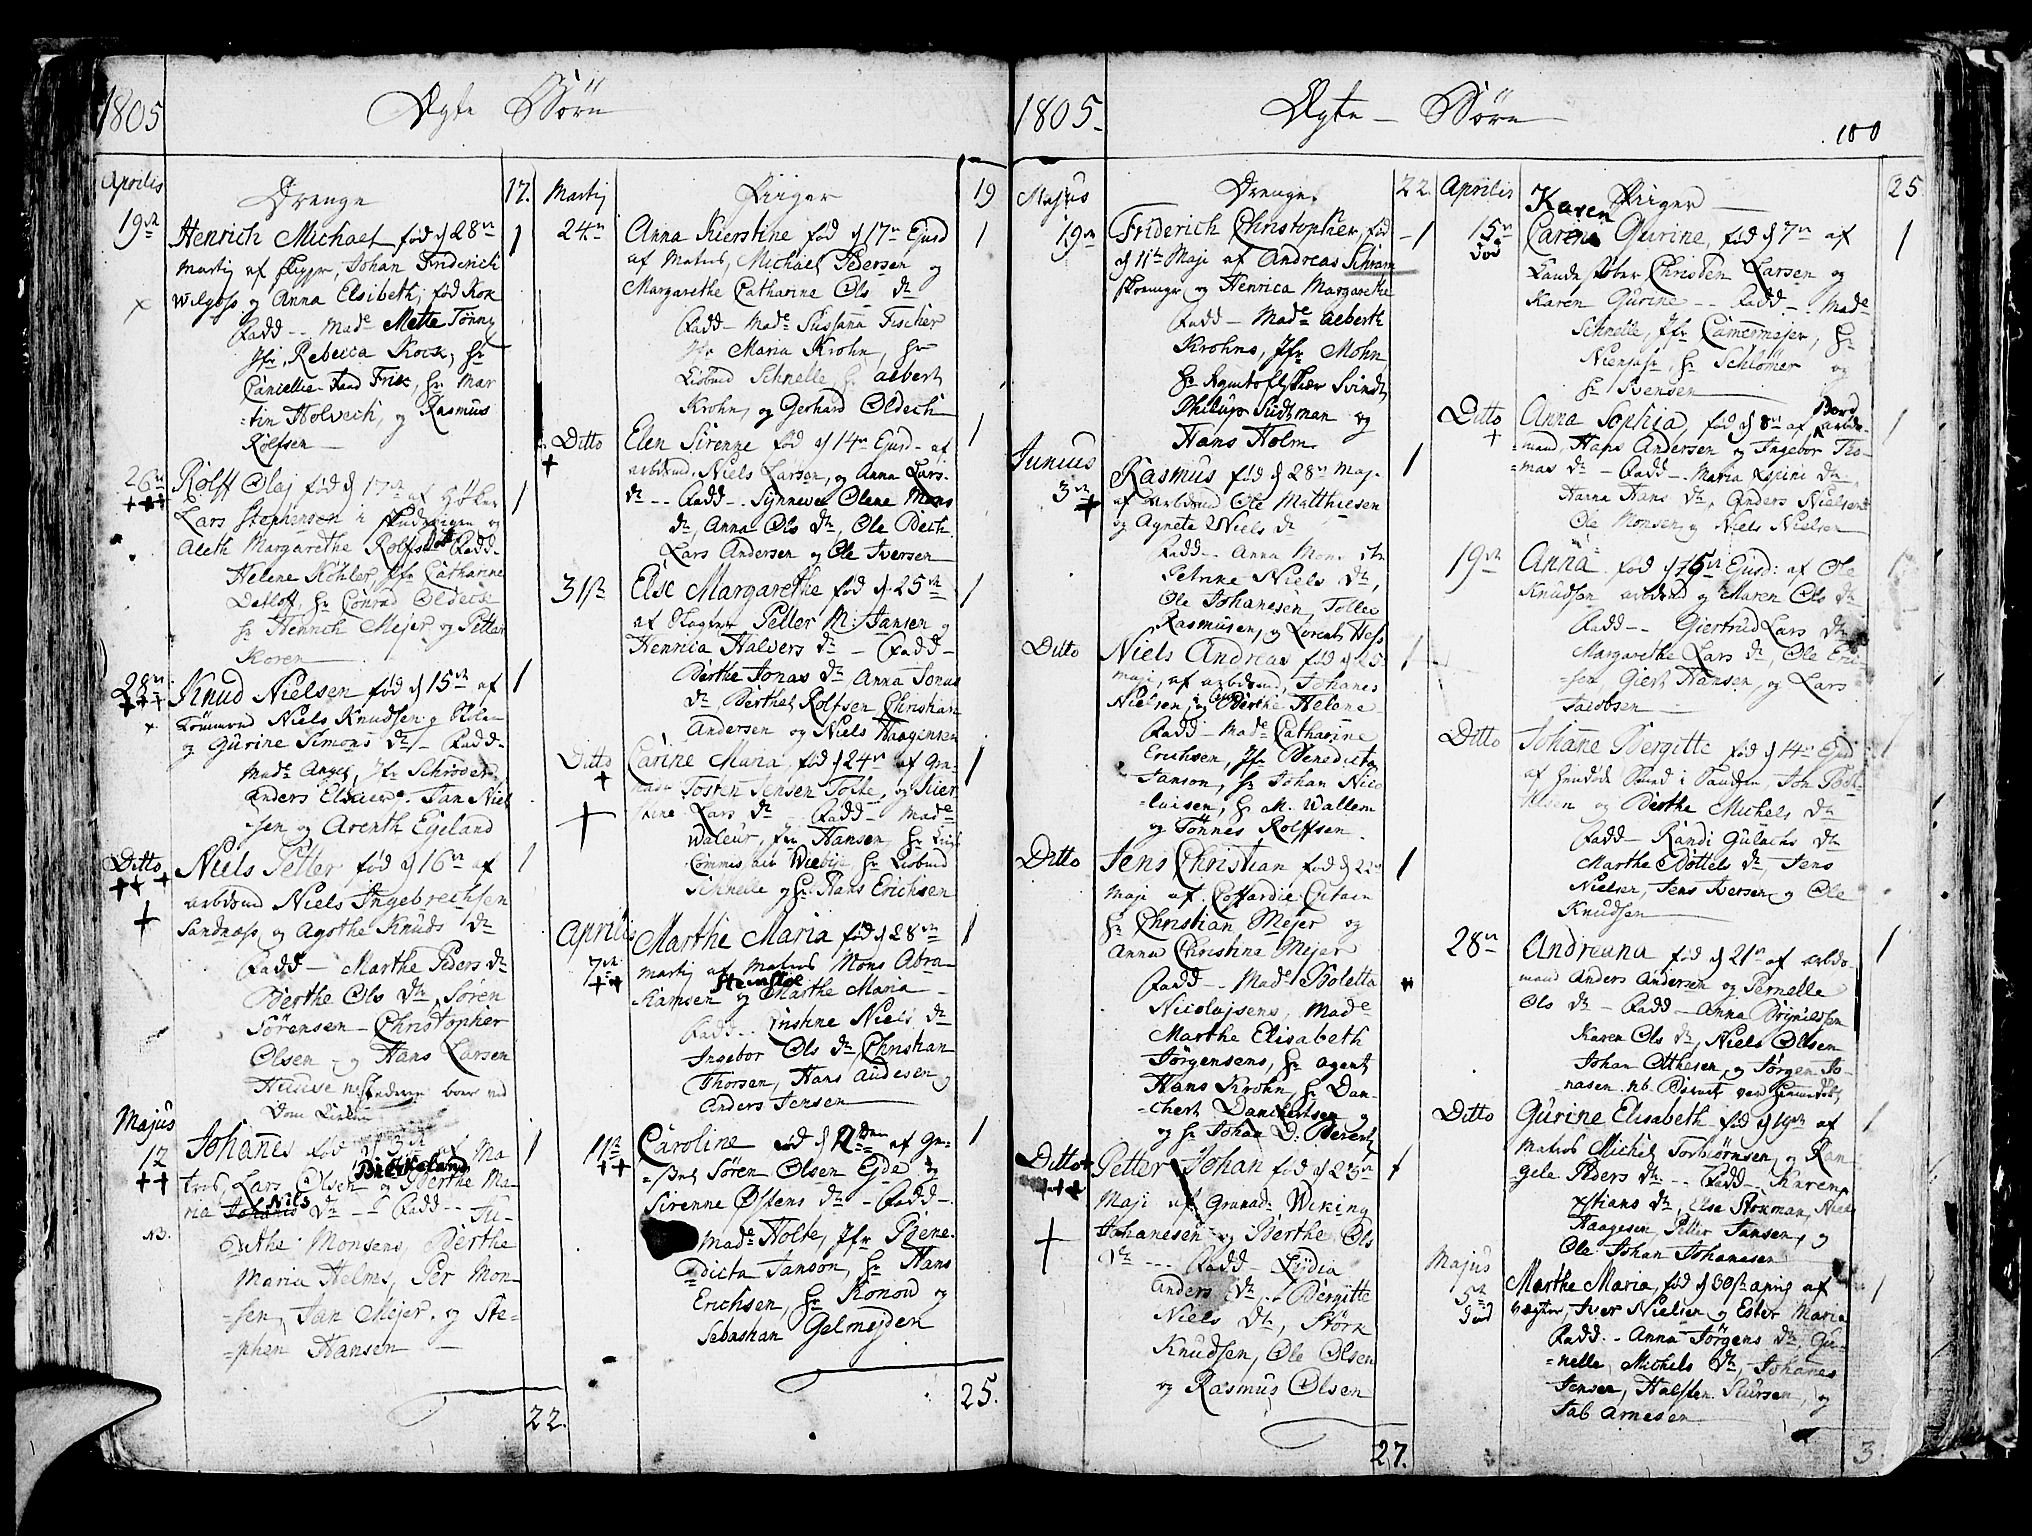 1805
Ægte Börn
Aprilis
Drenge
17.
19de
Henrich Michael fød d 28de
1
Martij af Skipper, Johan Friderich
Wilgohs og Anna Elsibeth, fød Kok
Fadd -- Made Mette Tönny
Jfr, Rebecca Kock, Hr
Frick, Hr Mar
-tin Holvech, og Rasmus
Rolfsen
26de
Rolff Olaj fød d 17de af Höker
1
Lars Stephensen i Studviigen og
Aleth Margarethe Rolfs Fadd-
Helene Köhler, Jfr Catharine
Detloff, Hr Conrad Oldech
Hr Henrich Mejer og Petter
Koren
28de
Knud Nielsen fød d 15de af
1
Niels Knudsen
og Gurine Simons Dtr - Fadd-
Made Anger, Jfr Schröder
Anders Jan Niel
-sen og Arenth Egeland
Ditto
Niels Petter fød d 16de af
1
arbdsmd Niels Ingebrechtsen
Sandnæss og Agothe Knuds Dtr
Fadd - Marthe Peders Dtr
Berthe Ols Dtr, Sören
Sörensen - Christopher
Olsen - og Hans Larsen
Dom Kirken
Majus
12
Johanes fød d 3de af Ma
1
Birkeland
tros Lars Olsen og Berthe Ma-
Nils
ria Johanes Dtr - Fadd --
NB.
Monsens, Berthe
Maria Helms, Per Mon-
-sen, Jan Mejer, og Ste-
-phen Hansen
22.
Martij
Piiger
19
24de
Anna Kierstine fød d 17de Ejusd
1
af Matros, Michael Pedersen og
Margarethe Catharine Ols Dtr
Fadd - Made Sussana Fischer
Jfr Maria Krohn, Hr
Schnelle Hr Albert
Krohn, og Gerhard Oldech
Ditto
Elen Sirenne fød d 14de Ejusd - af
1
arbdsmd. Niels Larsen, og Anna Lars-
Dtr -- Fadd - Synneve Olene Mons
Dtr, Anna Ols Dtr, Ole Bech
Lars Andersen og Ole Iversen
31te
Else Margarethe fød d 25de
1
af Slagter Petter M: Jansen og
Henrica Halvers Dtr - Fadd -
Berthe Jonas Dtr Anna Jonas
Dtr Berthel Rolfsen Christian
Andersen og Niels Haagensen
Ditto
Carine Maria, fød d 24de af Gre-
1
Tosten Jensen Tofte, og Kier-
stine Lars Dtr - Fadd - Made
Waleur, Jfr Hansen Hr
Commis Wiebye Hr
Schnelle og Hr Hans Erichsen
Aprilis
Marthe Maria fød d 28de
1
7de
Martij af Matros Mons Abra-
Stensløe
hamsen og Marthe Maria -
Fadd -- Cristine Niels Dtr
Ingebor Ols Dtr, Christian
Thorsen, Hans Andesen og
Anders Jensen
11te
Caroline fød d 2den af
1
Sören Olsen Ejde og
Sirenne Östens Dtr - Fadd -
Made Holte, Jfr Bene-
-dicta Janson, Hr Hans
Erichsen, Hr Konow og
Sebastian Gelmejden
25.
1805.
Ægte - Börn
100
Majus
Drenge.
22.
19de
Friderich Christopher, fød
1
d 11te Maji af Andreas Schram
og Henrica Margarethe
Fadd - Made Alberth
Krohns, Jfr Mohn
Hr Svindt
Philip Sudtman og
Hans Holm
Junius
3de
Rasmus fød d 28de Maj.
1
af arbdsmd Ole Matthiesen
og Agnete Niels Dtr
Fadd -- Anna Mons Dtr
Petrine Niels Dtr,
Ole Johanesen, Tolle
Rasmusen, og Lorents Hess
Ditto
Niels Andreas fød d 25
1
Maji, af arbdsmd, Johanes
Nielsen, og Berthe Helene
Fadd - Made Catharine
Erichsen, Jfr Benedicta
Janson, Hr Johan Nico
-laisen, Hr M. Wallem
og Tönnes Rolffsen
Ditto
Jens Christian fød d 22de
1
Maji af Coffardie Capitain
Hr Christian Mejer og
Anna Christina Mejer
Fadd - Made Boletta
Nicolajsens, Made
Marthe Elisabeth
Jörgensens, Hr Agent
Hans Krohn, Hr Dan-
-chert Danchertsen og
og Hr Johan D: Berent
Ditto
Petter Johan fød d 25de
1
Maji af Granad: Wiking
Johanesen og Berthe Ols
Dtr --- Fadd - Lydia
Anders Dtr, - Bergitte
Niels Dtr, Störk
Knudsen, Ole Olsen
og Rasmus Olsen
27.
Aprilis
Piiger
25
Karen
15de
Carine Gurine, fød d 7de af
1
död
Christen Larsen og
Karen Gurine -- Fadd - Made
Schnelle, Jfr Camermejer, Hr
Hr Schlömer og
Hr Svensen
Ditto
Anna Sophia, fød d 8de af arbds-
1
mand, Hans Andersen og Ingebor Tho-
-mas Dtr - Fadd - Maria Dtr,
Hanna Hans Dtr, Anders Nielsen
Ole Monsen og Niels Nielsen
19de
Anna fød d 15de Ejusd: af Ole
Knudsen arbdsmd og Maren Ols Dtr
Fadd -- Giertrud Lars Dtr
Margarethe Lars Dtr, Ole Eric-
-sen Giert Hansen, og Lars
Jacobsen
Ditto
Johane Bergitte fød d 14de Ejusd
af
og Berthe Michels Dtr
Fadd - Randi Gulachs Dtr
Marthe Dtr, Jens
Nielsen, Jens Iversen og Ole
Knudsen
28de
Andreana fød d 21de af arbds-
1
mand Anders Andersen og Pernelle
Ols Dtr - Fadd - Anna Brynildsen
Karen Ols Dtr, Niels Olsen
Johan Othesen, og Jörgen Jo-
nasen. nb. Barnet var
Ditto
Gurine Elisabeth fød d 19de af
1
Matros Michel Torbiörnsen, og Ran-
gele Iders Dtr -- Fadd - Karen
Xstians Dtr, Else Störman, Niels
Haagesen, Petter Jansen, og
Ole Johan Johanesen
Majus
5te
Marthe Maria, fød d 30te April af
1
död
Vægter, Iver Nielsen og Ester Maria
Fadd - Anna Jörgens Dtr, Gu-
-nelle Michels Dtr, Johanes
Jensen, Halsten Siursen, og
Jab Arnesen
3